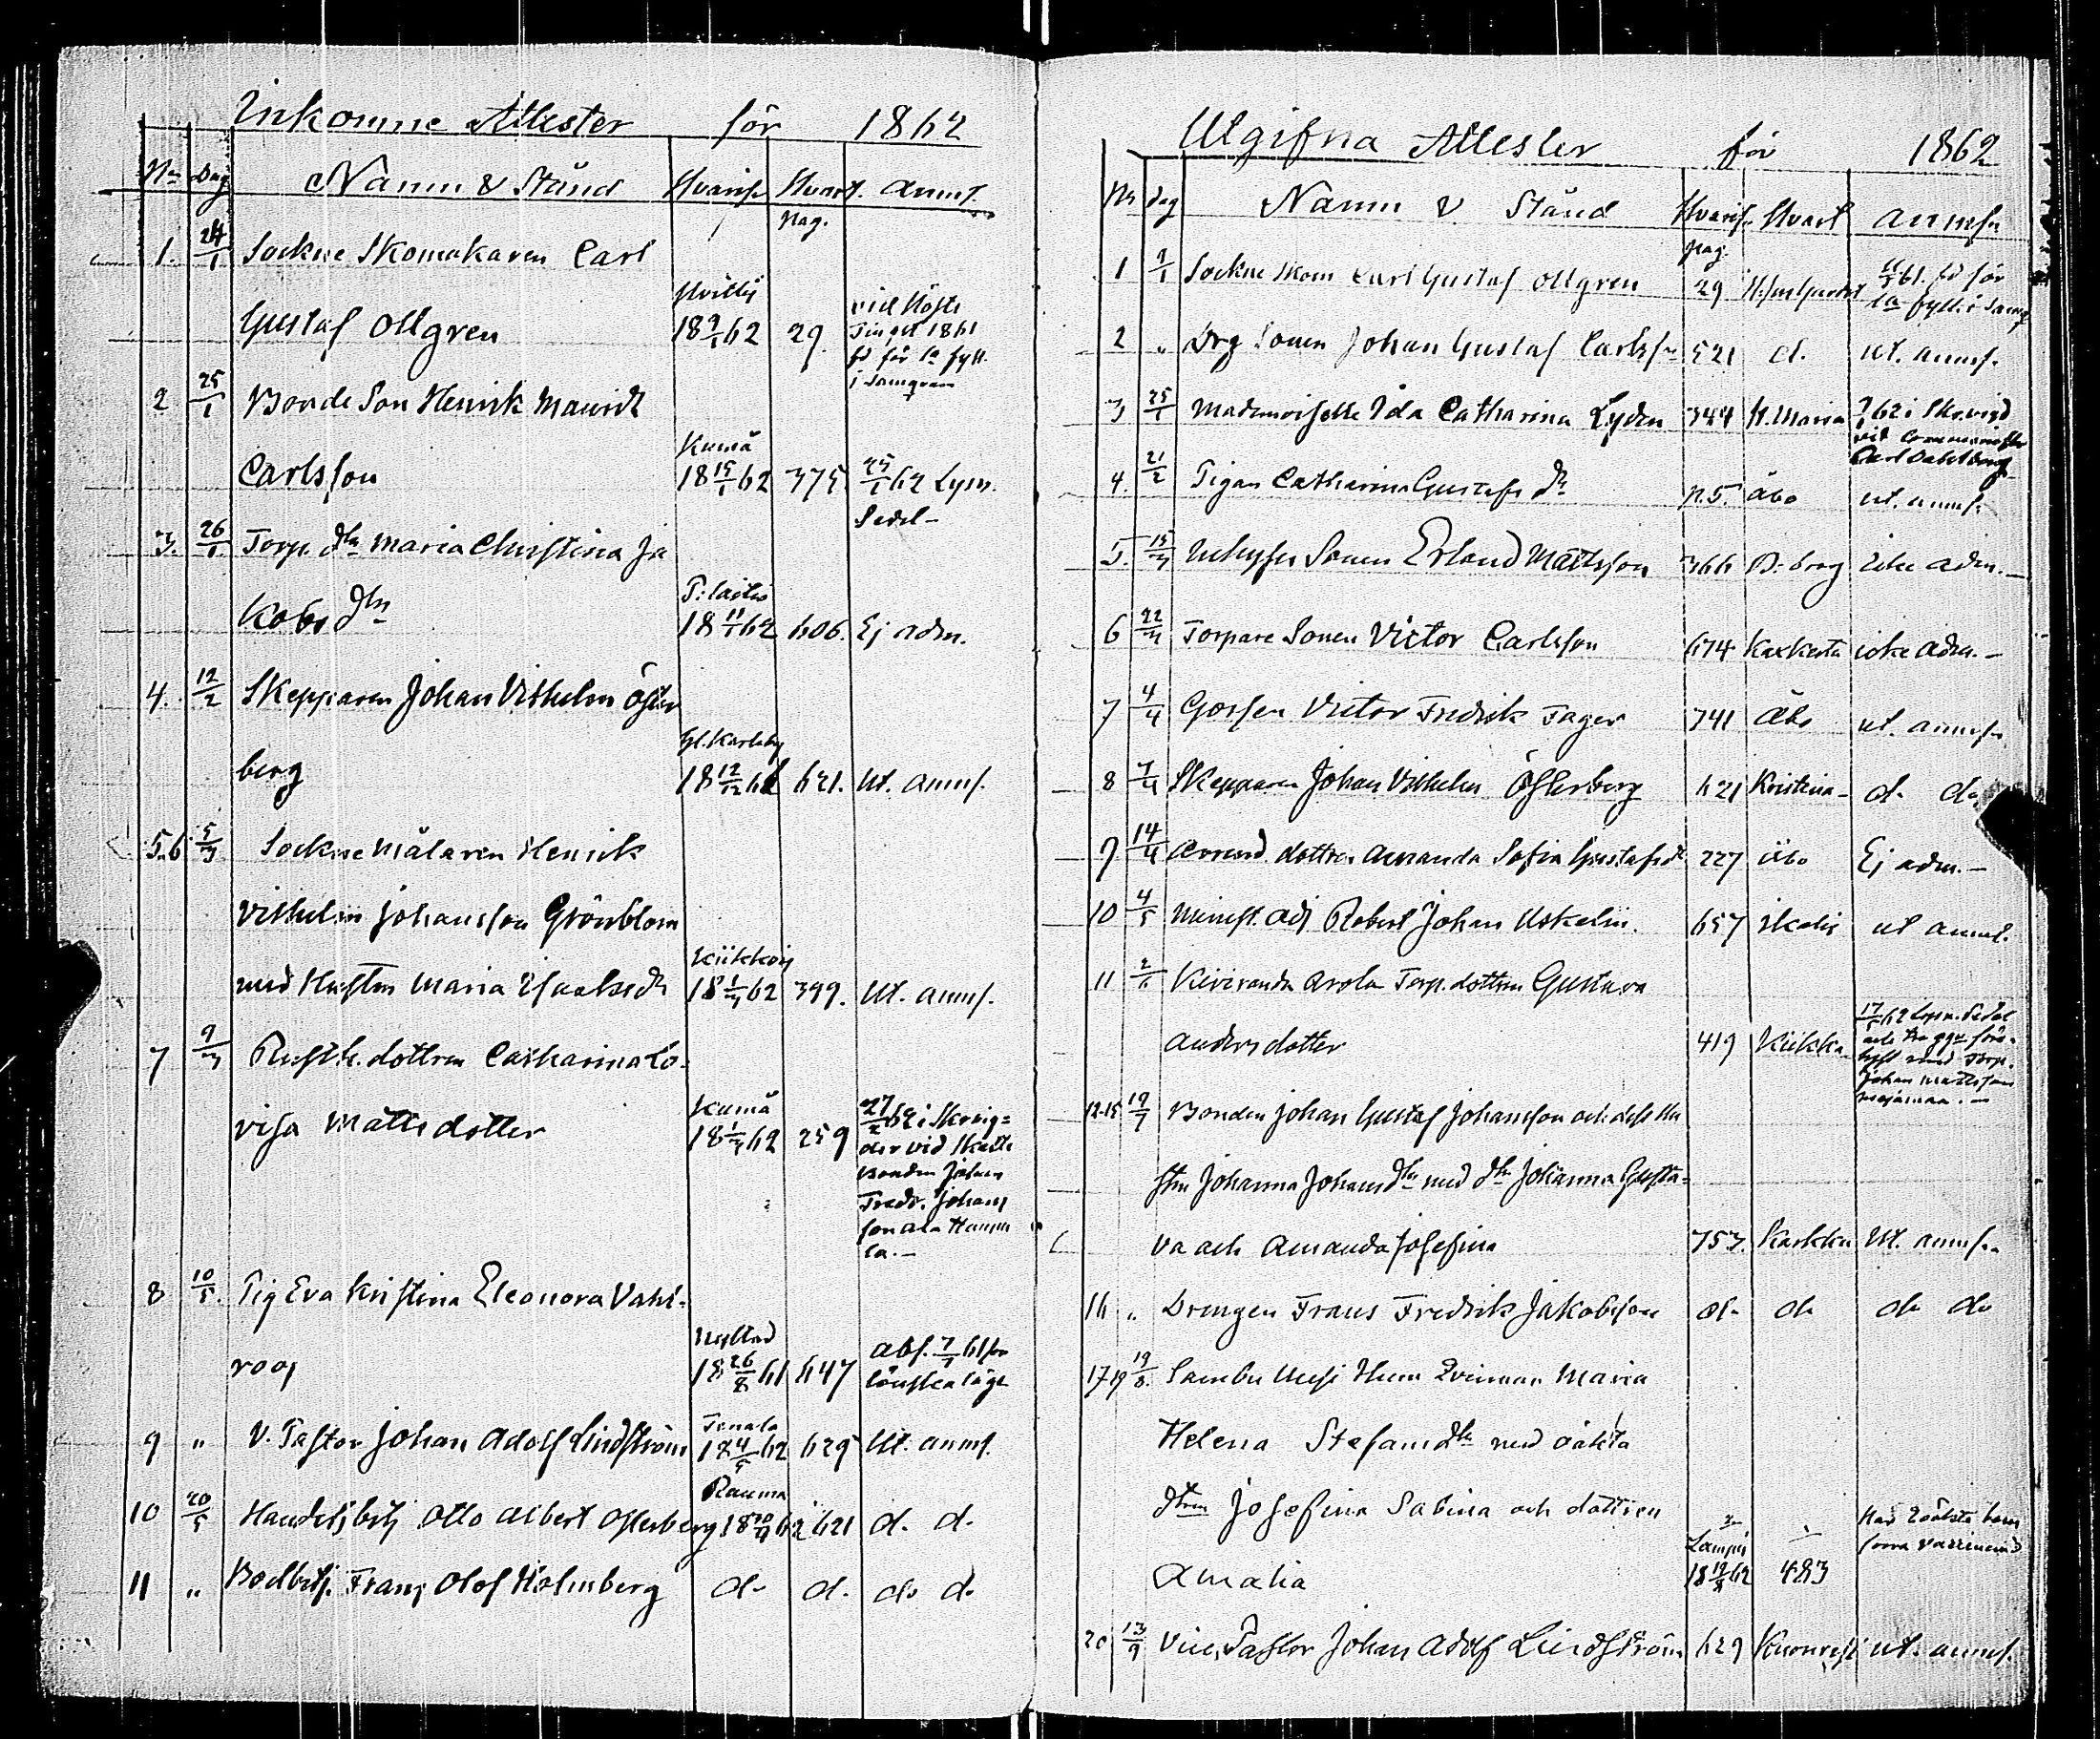 Inkomne Attester för 1862
No Dag Namn & Stånd Hvarifr. Hvart. anmk.
pag.
1. 24/1 Sockne Skomakaren Carl
Gustaf Ollgren Hvittis 18 9/1 62 29. vid Höste
Tinget 1861
fd för 1a fyll.
i samqvem
2 25/1 Bonde Son Henrik Maurits
Carlsson Kumå 18 15/1 62 375 25/1 62 Lysn.
Sedel -
3. 26/1 Torp. dtn Maria Christina Ja
kobs dtr 18 11/1 62 606. Ej adm.
4. 12/2 Skepparen Johan Vilhelm Öster
berg Gl. Karleby 18 12/12 61 621. Ut. anmk.
5.6 5/3 Sockne Målaren Henrik
Vilhelm Johansson Grönblom
med Hustrun Maria Isaaksdr Kiikkois 18 1/3 62 399. Ut. anmk.
7 9/3 Rusth. dottren Catharina Lo-
visa Mattsdotter Kumå 18 1/3 62 259 27/2 62 i Sk. vig=
der vid Skatte
Bonden Johan
Fredr. Johans
son Ala Hannu
la. -
8 10/5 Pig Eva Kristina Eleonora Vahl-
roos Nystad 18 26/8 61 647 abs. 7/7 61 för
lönska läge
9 " V. Pastor Johan Adolf Lindström Tenala 18 4/5 62 629 Ut. anmk.
10 20/5 Handelsbetj Otto Albert Osterberg Rauma 18 20/4 62 621 d. d.
11 " Bodbetj. Frans Olof Holmberg do d. do d.
Utgifna Attester för 1862
No dag Namn & Stånd Hvarifr. Hvart anmk
pag.
1 9/1 Sockne Skom Carl Gustaf Ollgren 29 61. fd för
1a fyll. i samq
2 " Drg Sonen Johan Gustaf Carlsson 521 d. ut. anmk.
3 25/1 Mademoiselle Ida Catharina Lyden 344 H. Maria 62 i Sk. vigd
vid
Carl Dahlberg
4. 21/2 Pigan Catharina Gustafs dr n. 5. Åbo ut. anmk.
5. 15/3 Inhyses Sonen Erland Mattsson 366 B-borg icke adm. -
6 22/3 Torpare Sonen Victor Carlsson 674 Kaxkerta icke adm. -
7 4/4 Gossen Victor Fredrik Fager 741 Åbo ut. anmk
8 7/4 Skepparen Johan Vilhelm Österberg 621 Kristina- d. do
9 14/4 Arrend. dottren Amanda Sofia Gustafsdr 227 Åbo Ej adm. -
10 4/5 Minist. Adj Robert Johan Uskelin. 657 Ikalis ut anmk.
11 Kiviranda Arola Torp. dottren Gustava
Andersdotter 419 Kiikka 17/5 62 Lysn. Sedel
med Torp.
Johan Mattsson
12-15 12/7 Bonden Johan Gustaf Johansson och dess Hu
strn Johanna Johans dtr med dtr Johanna Gusta=
va och Amanda Josefina 757. Karkku Ut. anmk.
16 " Drengen Frans Fredrik Jakobsson do do do do
17-19 19/8. Sambu Uusi Maria
Helena Stefans dtr med oäkta
dtren Josefina Sabina och dottren
Amalia Lampis 18 19/8 62 483 Har 2 oäkta barn
20 13/9 Vice Pastor Johan Adolf Lindström 629 ut. anmk.